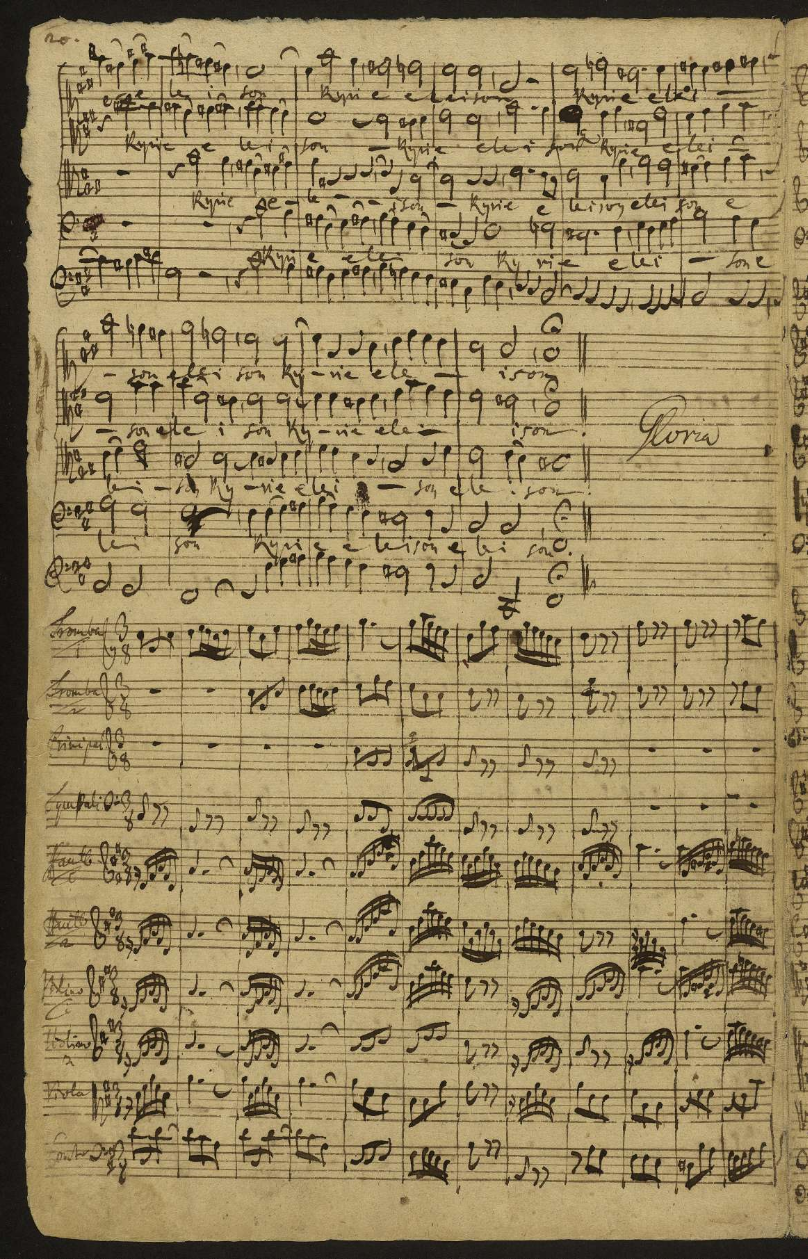 20.
e le i son Kyrie e e leison Kyrie elei
Kyrie e lei son Kyrie elei son Kyrie e lei
Kyrie e le ison Kyrie e leison elei son e
Kyrie elei son Kyrie elei son e
son elei son Ky rie ele ison
son ele i son Ky rie elei ison.
Gloria
lei son Ky rie elei son e le ison.
lei son Kyrie e leison e lei son.
Tromba
1
Tromba
2
Principal
Tympali
Traver
Traver
2
Violino
1
Violino
2
Viola